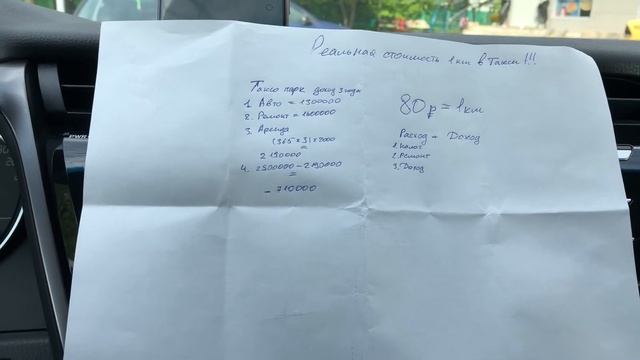 Реальная стоимость 1км в Такси!!!
Таксо парк доход 3 года
1. Авто = 1300000
2. Ремонт = 1600000
3. Аренда
(365 x 3) x 2000
=
2190000
4. 2900000 - 2190000
=
- 710000
80р = 1км
Расход = Доход
1. Налог
2. Ремонт
3. Доход